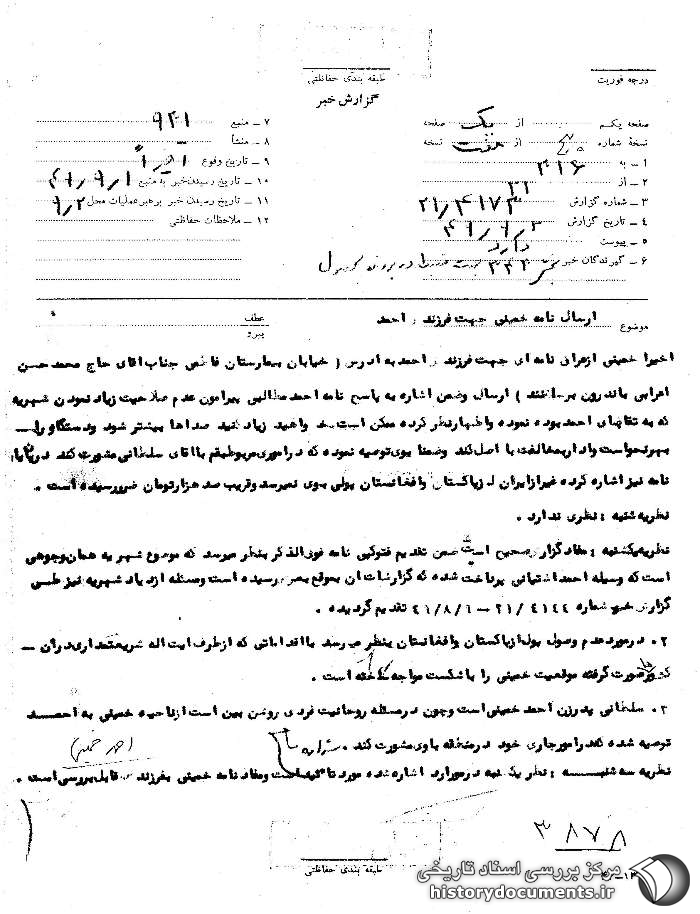 طبقه بندی حفاظتی
درجه فوریت
گزارش خبر
صفحه یکم از یک صفحه
نسخه شماره از هفت نسخه
۱ - به ۳۱۶
۲ - از ۳۱
۳ - شماره گزارش ۲۱/۴۱۷۳
۴ - تاریخ گزارش ۴۶/۹/۳
۵ - پیوست دارد
۶ - گیرندگان خبر ۳۳۲
۷ - منبع ۹۴۱
۸ - منشأ
۹ - تاریخ وقوع
۱۰ - تاریخ رسیدن خبر به منبع ۴۶/۹/۱
۱۱ - تاریخ رسیدن خبر برهبر عملیات محل ۹/۲
۱۲ - ملاحظات حفاظتی
موضوع ارسال نامه خمینی جهت فرزندش احمد
عطف
پیرو
اخیرا خمینی ازعراق نامه ای جهت فرزندش احمد به ادرس ( خیابان بیمارستان فاطمی جناب اقای حاج محمد حسن
اعرابی باندرون برسانند ) ارسال وضمن اشاره به پاسخ نامه احمد مطالبی پیرامون عدم صلاحیت زیاد نمودن شهریه
که به تقاضای احمد بوده نموده واظهارنظر کرده ممکن است بخواهید زیاد کنید صداها بیشتر شود ودستگاه را
بهرنحواست وادار بمخالفت با اصل کند وضمنا بوی توصیه نموده که در امور مربوطه با اقای سلطانی مشورت کند درپایان
نامه نیز اشاره کرده غیر از ایران از پاکستان وافغانستان پولی بوی نمیرسد وقریب صد هزار تومان ضرر رسیده است .
نظریه شنبه : نظری ندارد .
نظریه یکشنبه : مفاد گزارش صحیح است ضمن تقدیم فتوکپی نامه فوق الذکر بنظر میرسد که موضوع شهریه همان وجوهی
است که وسیله احمد اشتیانی پرداخت شده که گزارشات ان بموقع بعرض رسیده است ومسئله ازدیاد شهریه نیز طی
گزارش خبر شماره ۲۱/۴۱۴۴ - ۴۶/۸/۶ تقدیم گردیده .
۲ - درمورد عدم وصول پول از پاکستان وافغانستان بنظر میرسد با اقداماتی که ازطرف ایت اله شریعتمداری در آن
کشورها صورت گرفته موقعیت خمینی را با شکست مواجه ساخته است .
۳ - سلطانی پدرزن احمد خمینی است وچون درمسئله روحانیت فردی روشن بین است ازناحیه خمینی به احمد
توصیه شده که در امور جاری خود درمنطقه باوی مشورت کند .
احمد خمینی
نظریه سه شنبه : نظریه یکشنبه در موارد اشاره شده مورد تائید است ومفاد نامه خمینی بفرزندش قابل بررسی است .
۳۸۷۸
طبقه بندی حفاظتی
مرکز بررسی اسناد تاریخی
historydocuments.ir